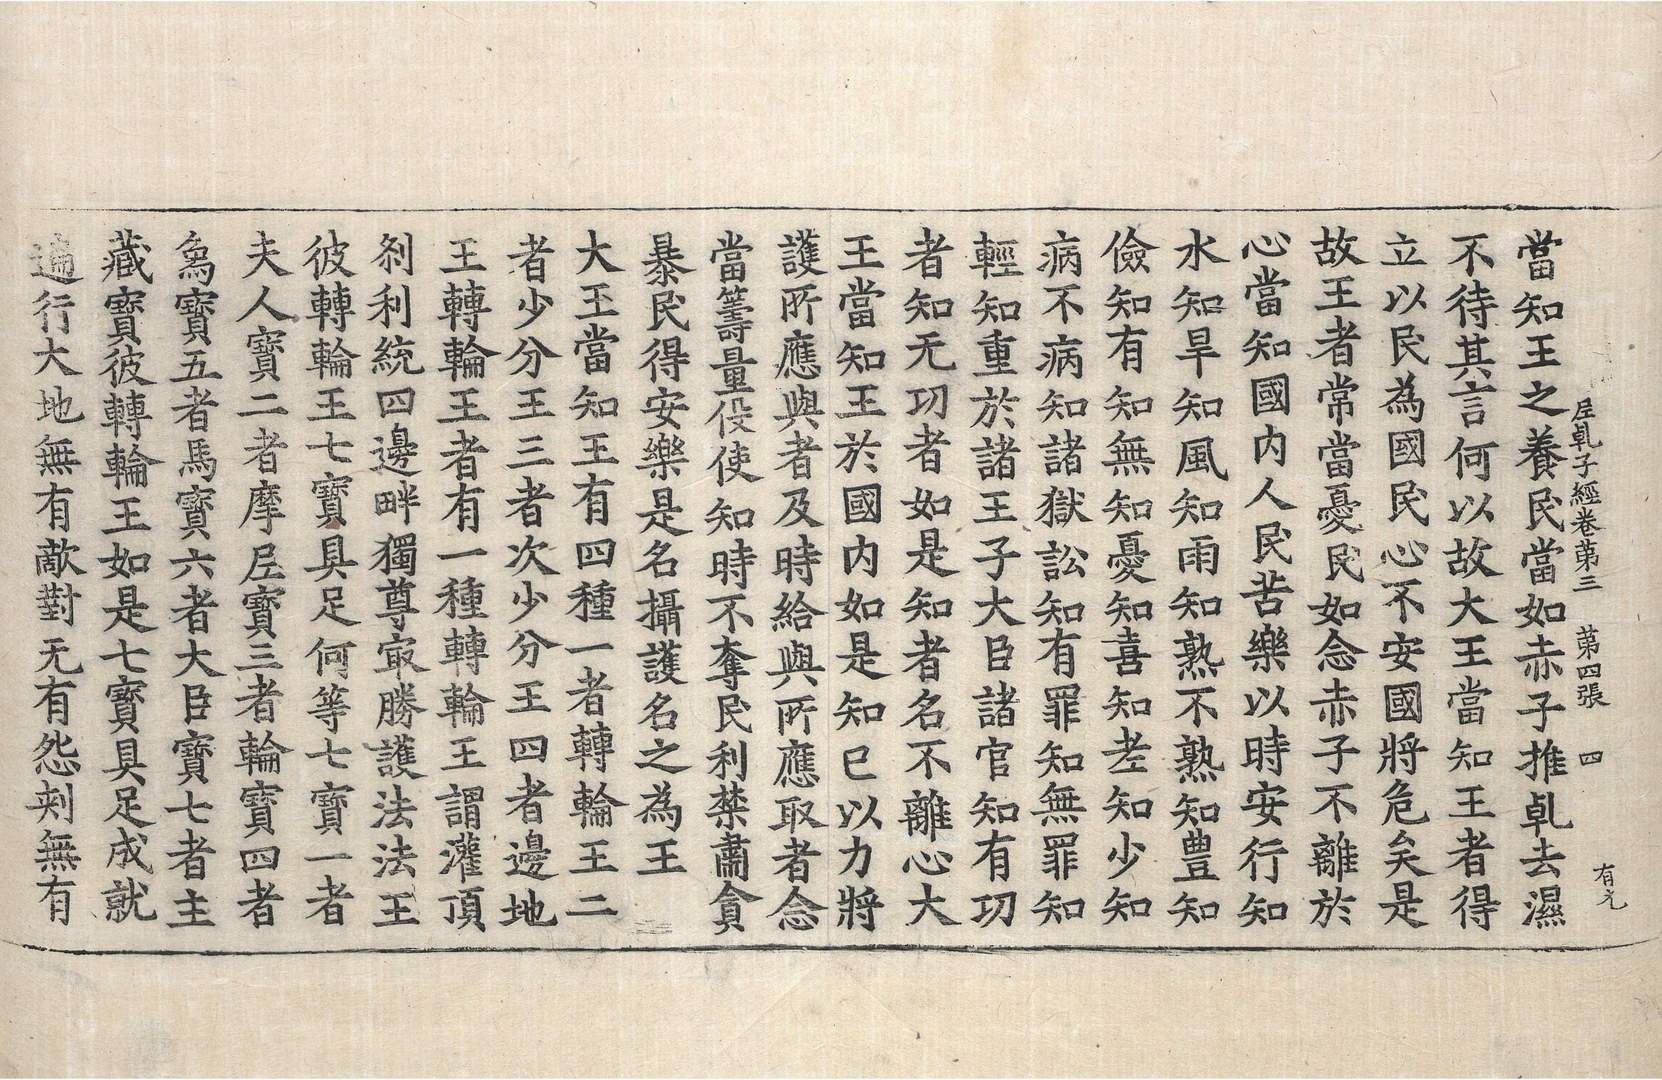 尼乹子經卷第三 第四張 四 有元
當知王之養民當如赤子推乹去濕
不待其言何以故大王當知王者得
立以民為國民心不安國將危矣是
故王者常當憂民如念赤子不離於
心當知國内人民苦樂以時安行知
水知旱知風知雨知熟不熟知豊知
儉知有知無知憂知喜知老知少知
病不病知諸獄訟知有罪知無罪知
輕知重於諸王子大臣諸官知有功
者知无功者如是知者名不離心大
王當知王於國内如是知已以力將
護所應與者及時給與所應取者念
當籌量役使知時不奪民利禁肅貪
暴民得安樂是名攝護名之為王
大王當知王有四種一者轉輪王二
者少分王三者次少分王四者邊地
王轉輪王者有一種轉輪王謂灌頂
刹利統四邊畔獨尊㝡勝護法法王
彼轉輪王七寶具足何等七寶一者
夫人寶二者摩尼寶三者輪寶四者
象寶五者馬寶六者大臣寶七者主
藏寶彼轉輪王如是七寶具足成就
遍行大地無有敵對无有怨刾無有